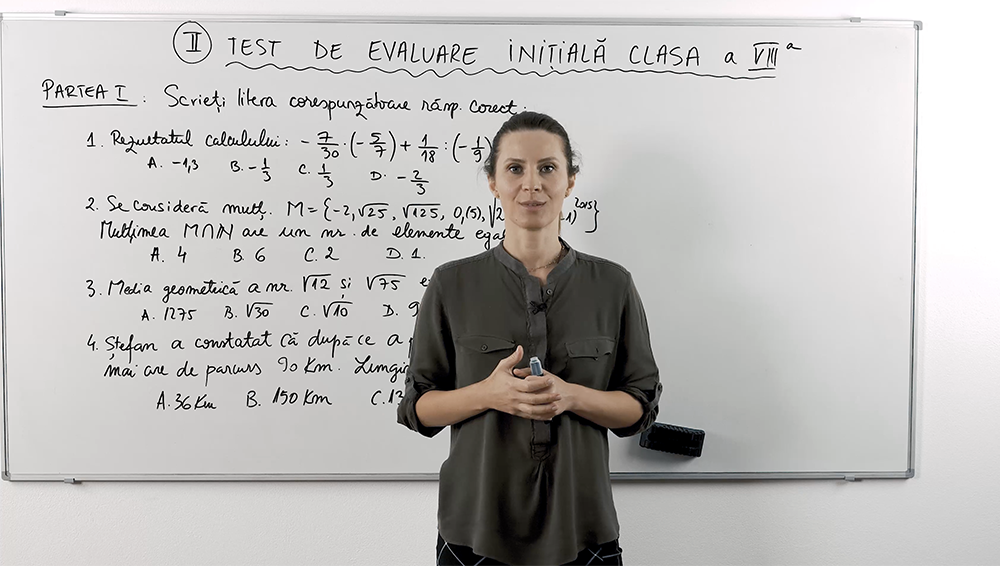 II TEST DE EVALUARE INIȚIALĂ CLASA a VIII a
PARTEA I : Scrieți litera corespunzătoare răsp. corect:
1. Rezultatul calculului: - 7/30 · (- 5/7) + 1/18 : (- 1/9)
A. -1,3 B. - 1/3 C. 1/3 D. - 2/3
2. Se consideră mulț. M = {-2, √25, √125, 0,(5), √2 -1)^2015}
Mulțimea M∩N are un nr. de elemente
A. 4 B. 6 C. 2 D. 1.
3. Media geometrică a nr. √12 și √75
A. 1275 B. √30 C. √10 D. 9
4. Ștefan a constatat că după ce a
mai are de parcurs 90 Km.
A. 36 Km B. 150 Km C. 13